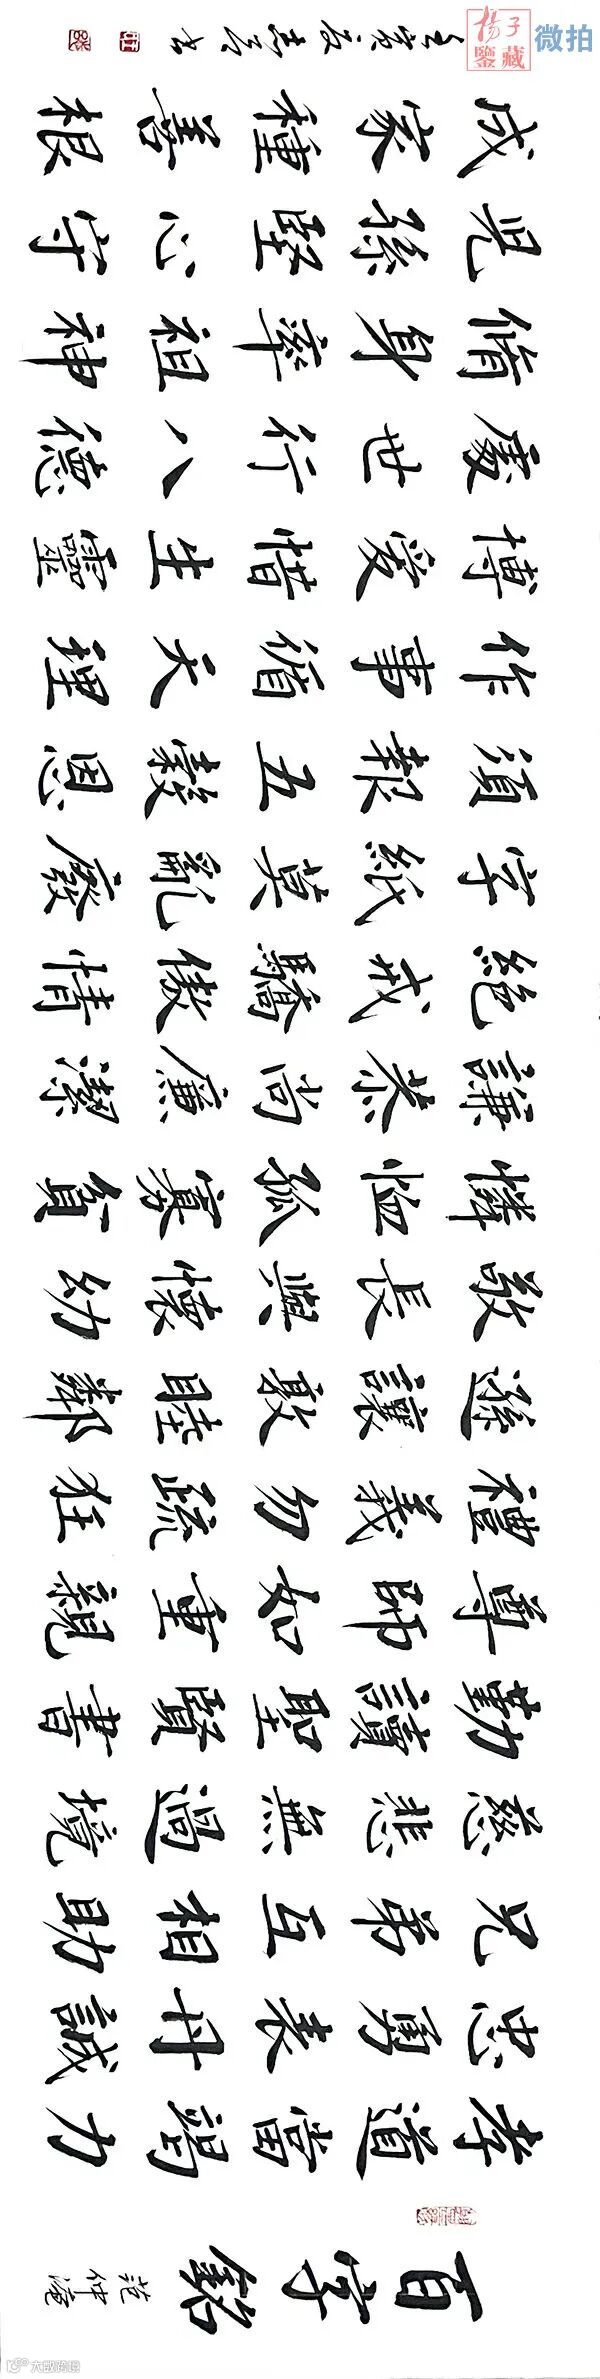 百字銘
范仲淹
孝道當竭力
忠勇表丹誠
兄弟互相助
慈悲無過境
勤讀聖賢書
尊師如重親
禮義勿疏狂
遜讓敦睦鄰
敬長與懷幼
憐恤孤寡貧
謙恭尚廉潔
絕戒驕傲情
字紙莫亂廢
須報五穀恩
作事循天理
博愛惜生靈
處世行八德
脩身率祖神
兒孫堅心守
成家種善根
壬寅夏
揚子
鑒藏
微拍
大数跨境